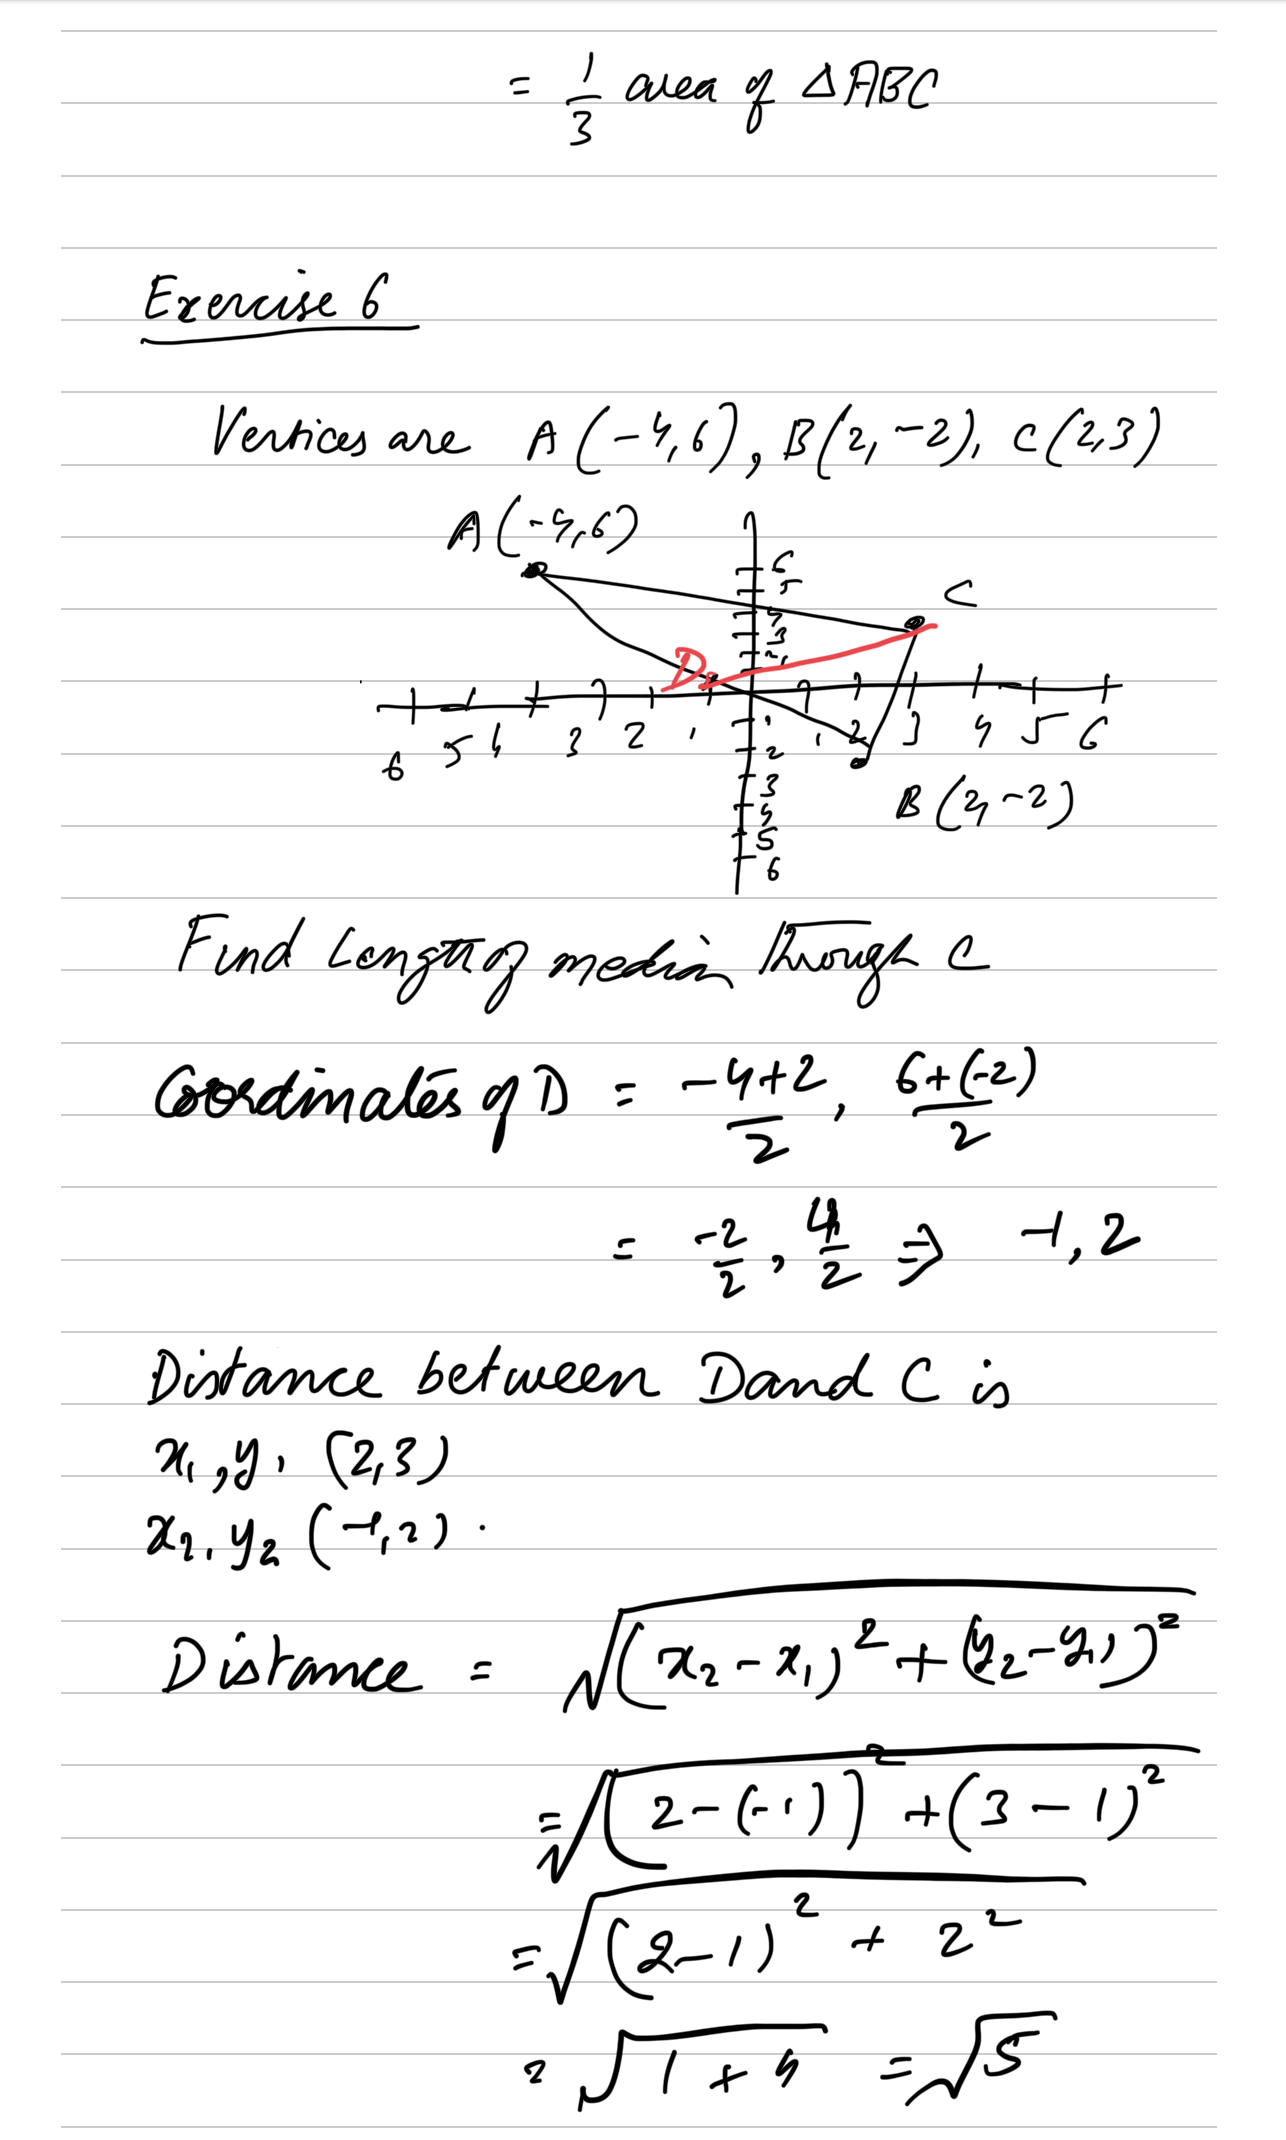 = 1/3 area of △ABC
Exercise 6
Vertices are A(-4,6), B(2,-2), C(2,3)
A(-4,6)
6
5
C
4
3
D
2
6 5 4 3 2 1 1 2 3 4 5 6
1
2
3
B(2,-2)
4
5
6
Find Length of median through C
Coordinates of D = (-4+2)/2, (6+(-2))/2
= -2/2, 4/2 ⇒ -1, 2
Distance between D and C is
x₁, y₁ (2,3)
x₂, y₂ (-1,2).
Distance = √((x₂-x₁)² + (y₂-y₁)²)
= √((2-(-1))² + (3-1)²)
= √((2-1)² + 2²)
= √(1+4) = √5